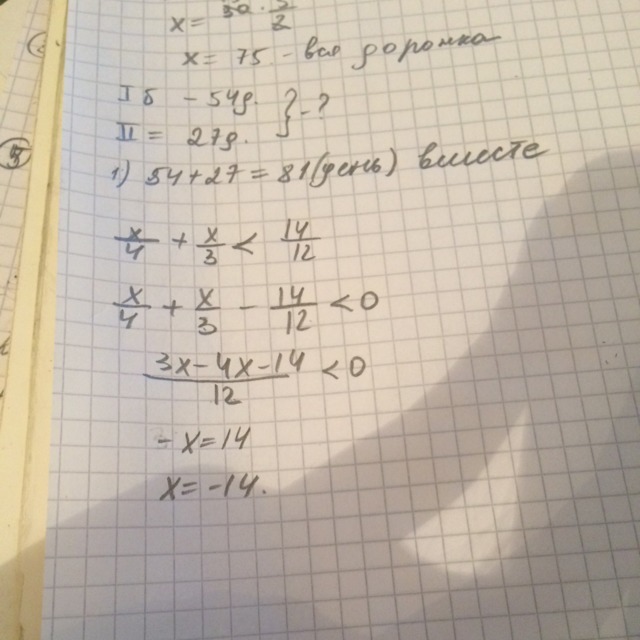 x = 30 · 5/2
x = 75 - вся дорожка
I б - 54д. } - ?
II = 27д.
1) 54 + 27 = 81 (день) вместе
x/4 + x/3 < 14/12
x/4 + x/3 - 14/12 < 0
3x - 4x - 14/12 < 0
- x = 14
x = -14.